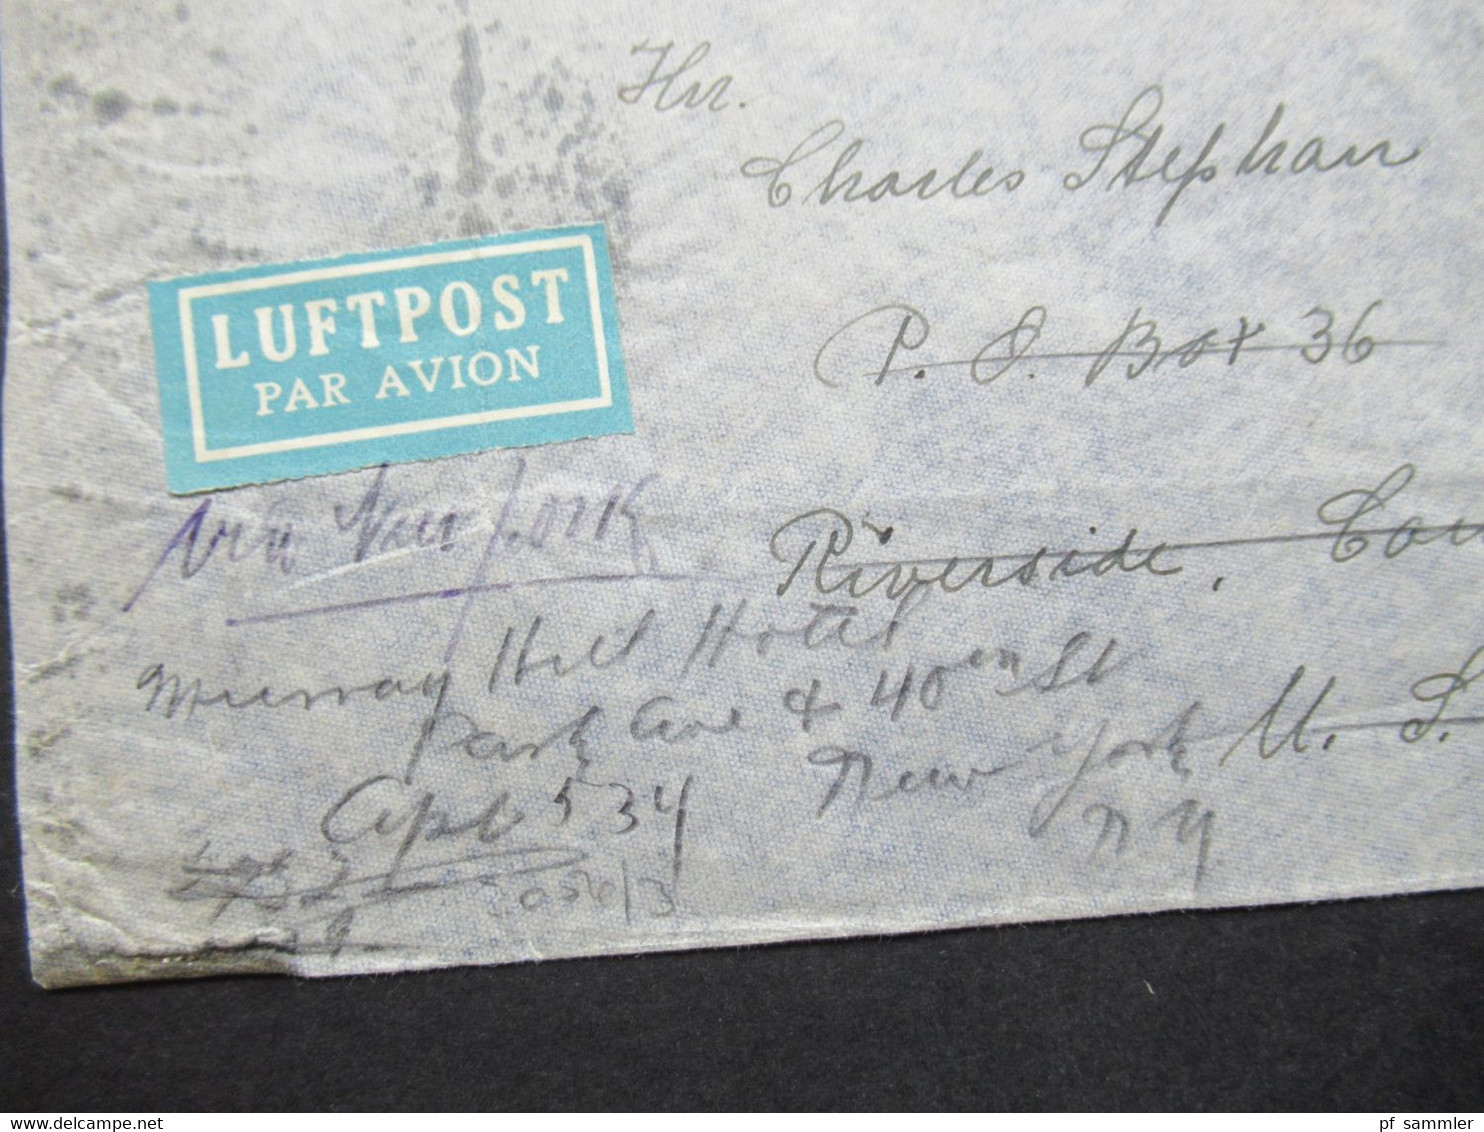 Hrr.
Charles Stephan
P. O. Box 36
LUFTPOST
PAR AVION
via New York
Riverside, Con
U. S.
Murray Hill Hotel
Park Ave & 40th St
New York
N Y
Apt 534
www.delcampe.net
pf_sammler